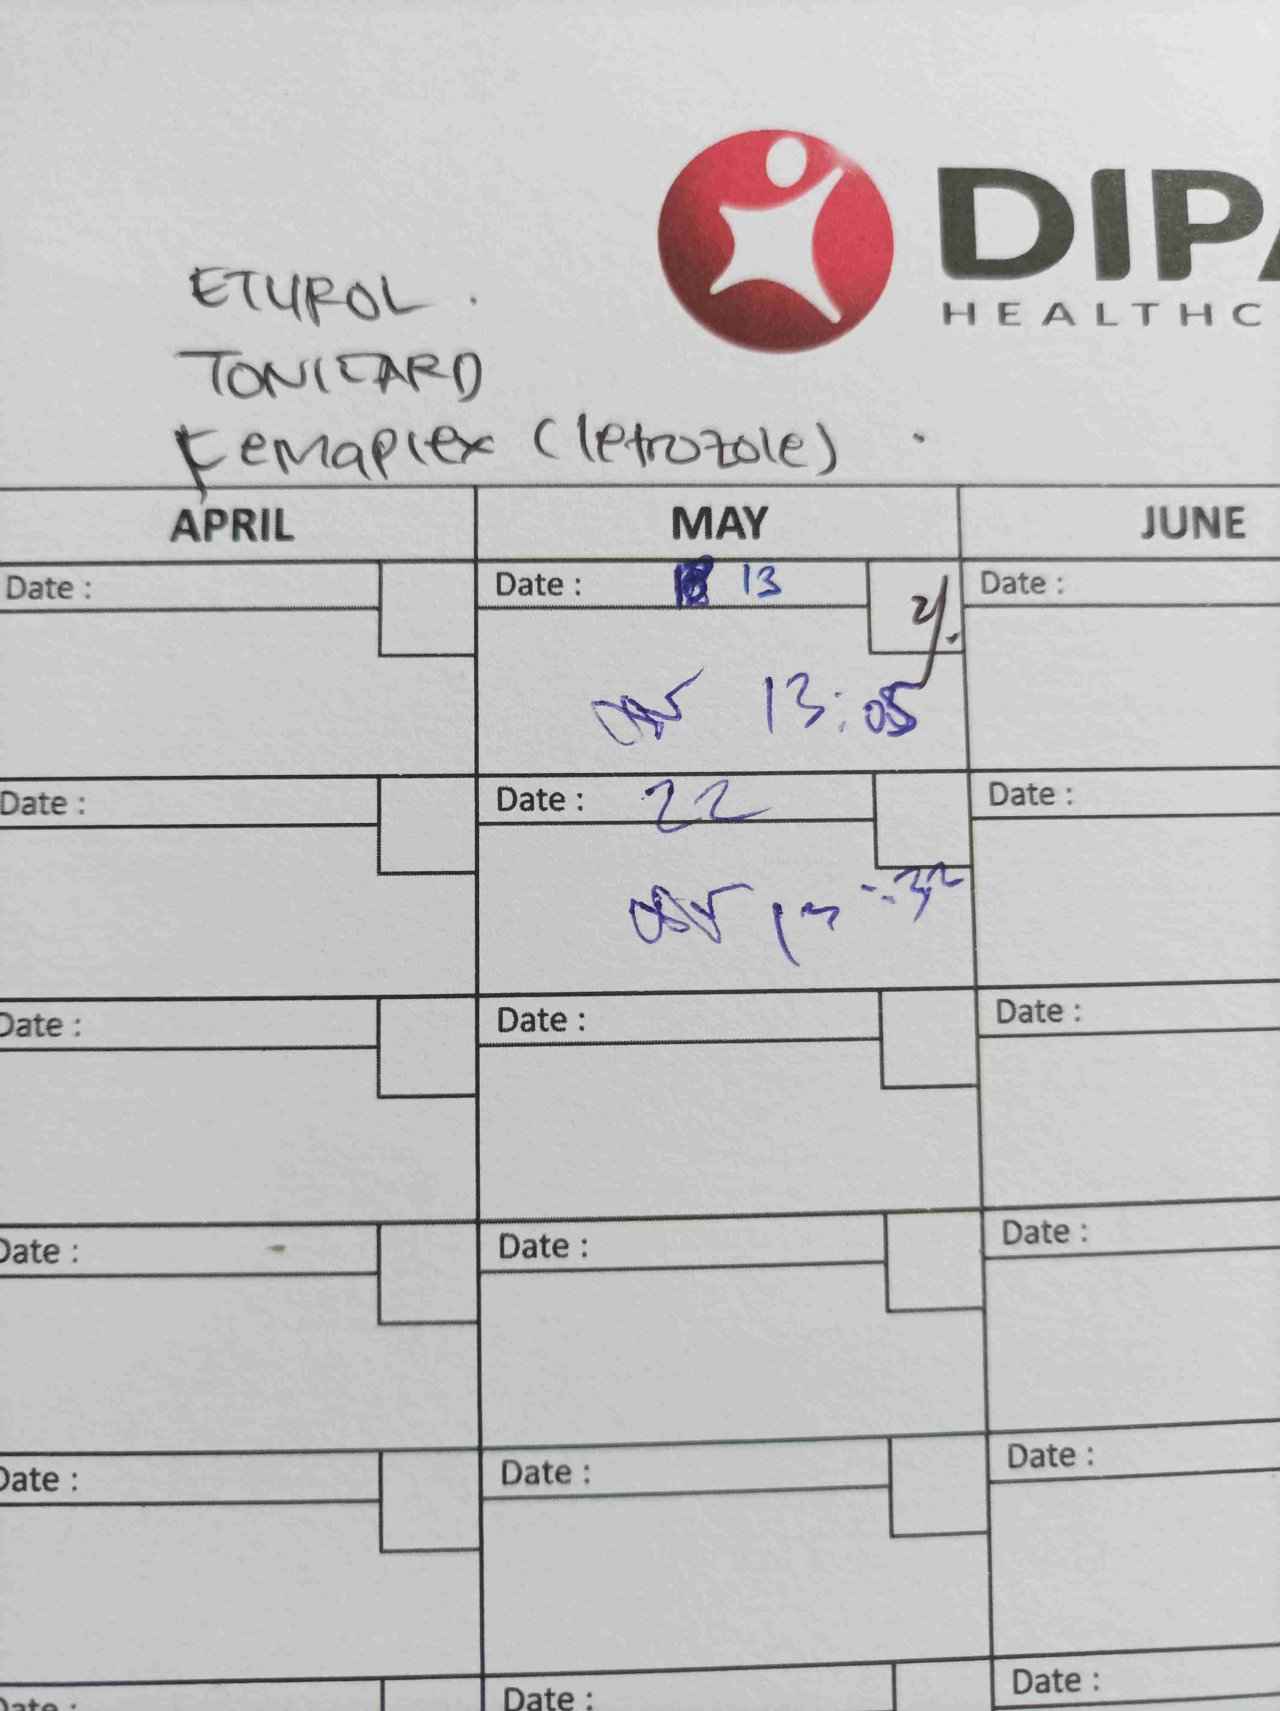 DIPA
HEALTHC
ETYPOL.
TONICARD
Femaplex (letrozole).
APRIL MAY JUNE
Date : Date : 13 Date :
13:05
Date : Date : 22 Date :
Date : Date : Date :
Date : Date : Date :
Date : Date : Date :
Date : Date : Date :